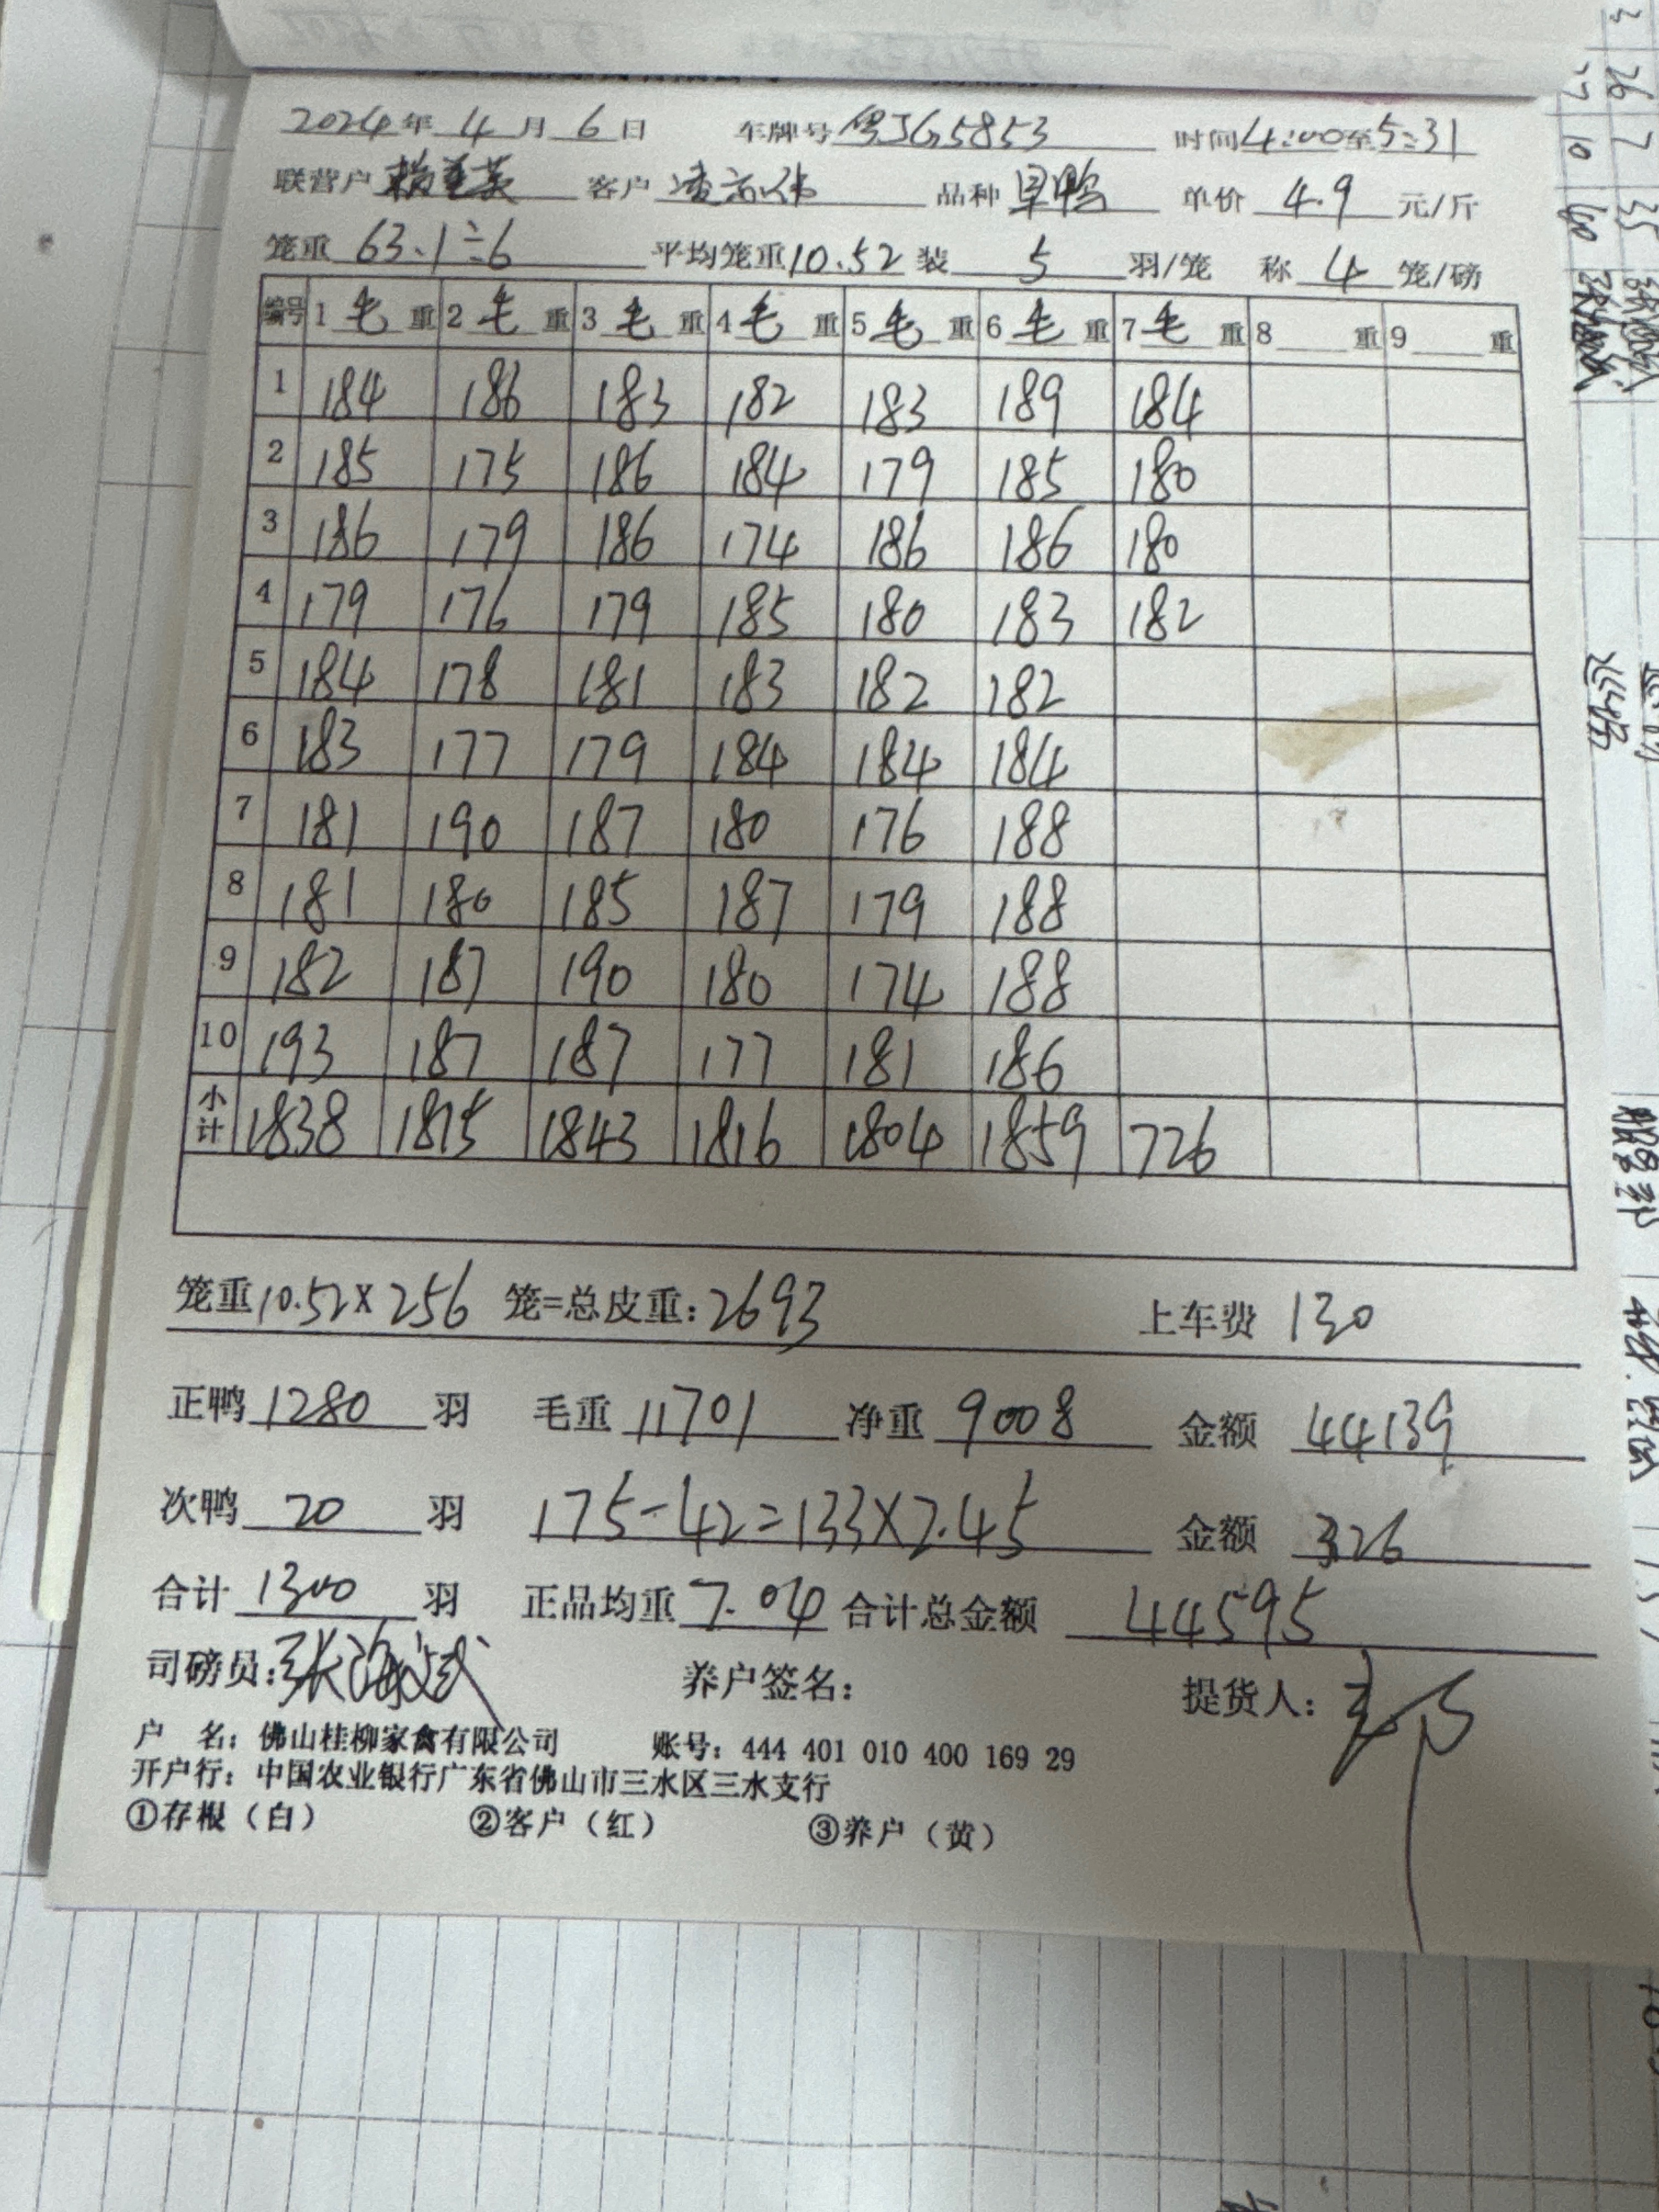 2024年 4月 6日 车牌号 粤JG5853 时间 4:00至5:31
联营户 客户 凌志伟 品种 旱鸭 单价 4.9 元/斤
笼重 63.1÷6 平均笼重 10.52 装 5 羽/笼 称 4 笼/磅
编号 1 毛 重 2 毛 重 3 毛 重 4 毛 重 5 毛 重 6 毛 重 7 毛 重 8 重 9 重
1 184 186 183 182 183 189 184
2 185 175 186 184 179 185 180
3 186 179 186 174 186 186 180
4 179 176 179 185 180 183 182
5 184 178 181 183 182 182
6 183 177 179 184 184 184
7 181 190 187 180 176 188
8 181 180 185 187 179 188
9 182 187 190 180 174 188
10 193 187 187 177 181 186
小计 1838 1815 1843 1816 1804 1859 726
笼重 10.52×256 笼=总皮重：2693 上车费 130
正鸭 1280 羽 毛重 11701 净重 9008 金额 44139
次鸭 20 羽 175-42=133×2.45 金额 326
合计 1300 羽 正品均重 7.04 合计总金额 44595
司磅员：张海斌 养户签名： 提货人：
户 名：佛山桂柳家禽有限公司 账号：444 401 010 400 169 29
开户行：中国农业银行广东省佛山市三水区三水支行
①存根（白） ②客户（红） ③养户（黄）